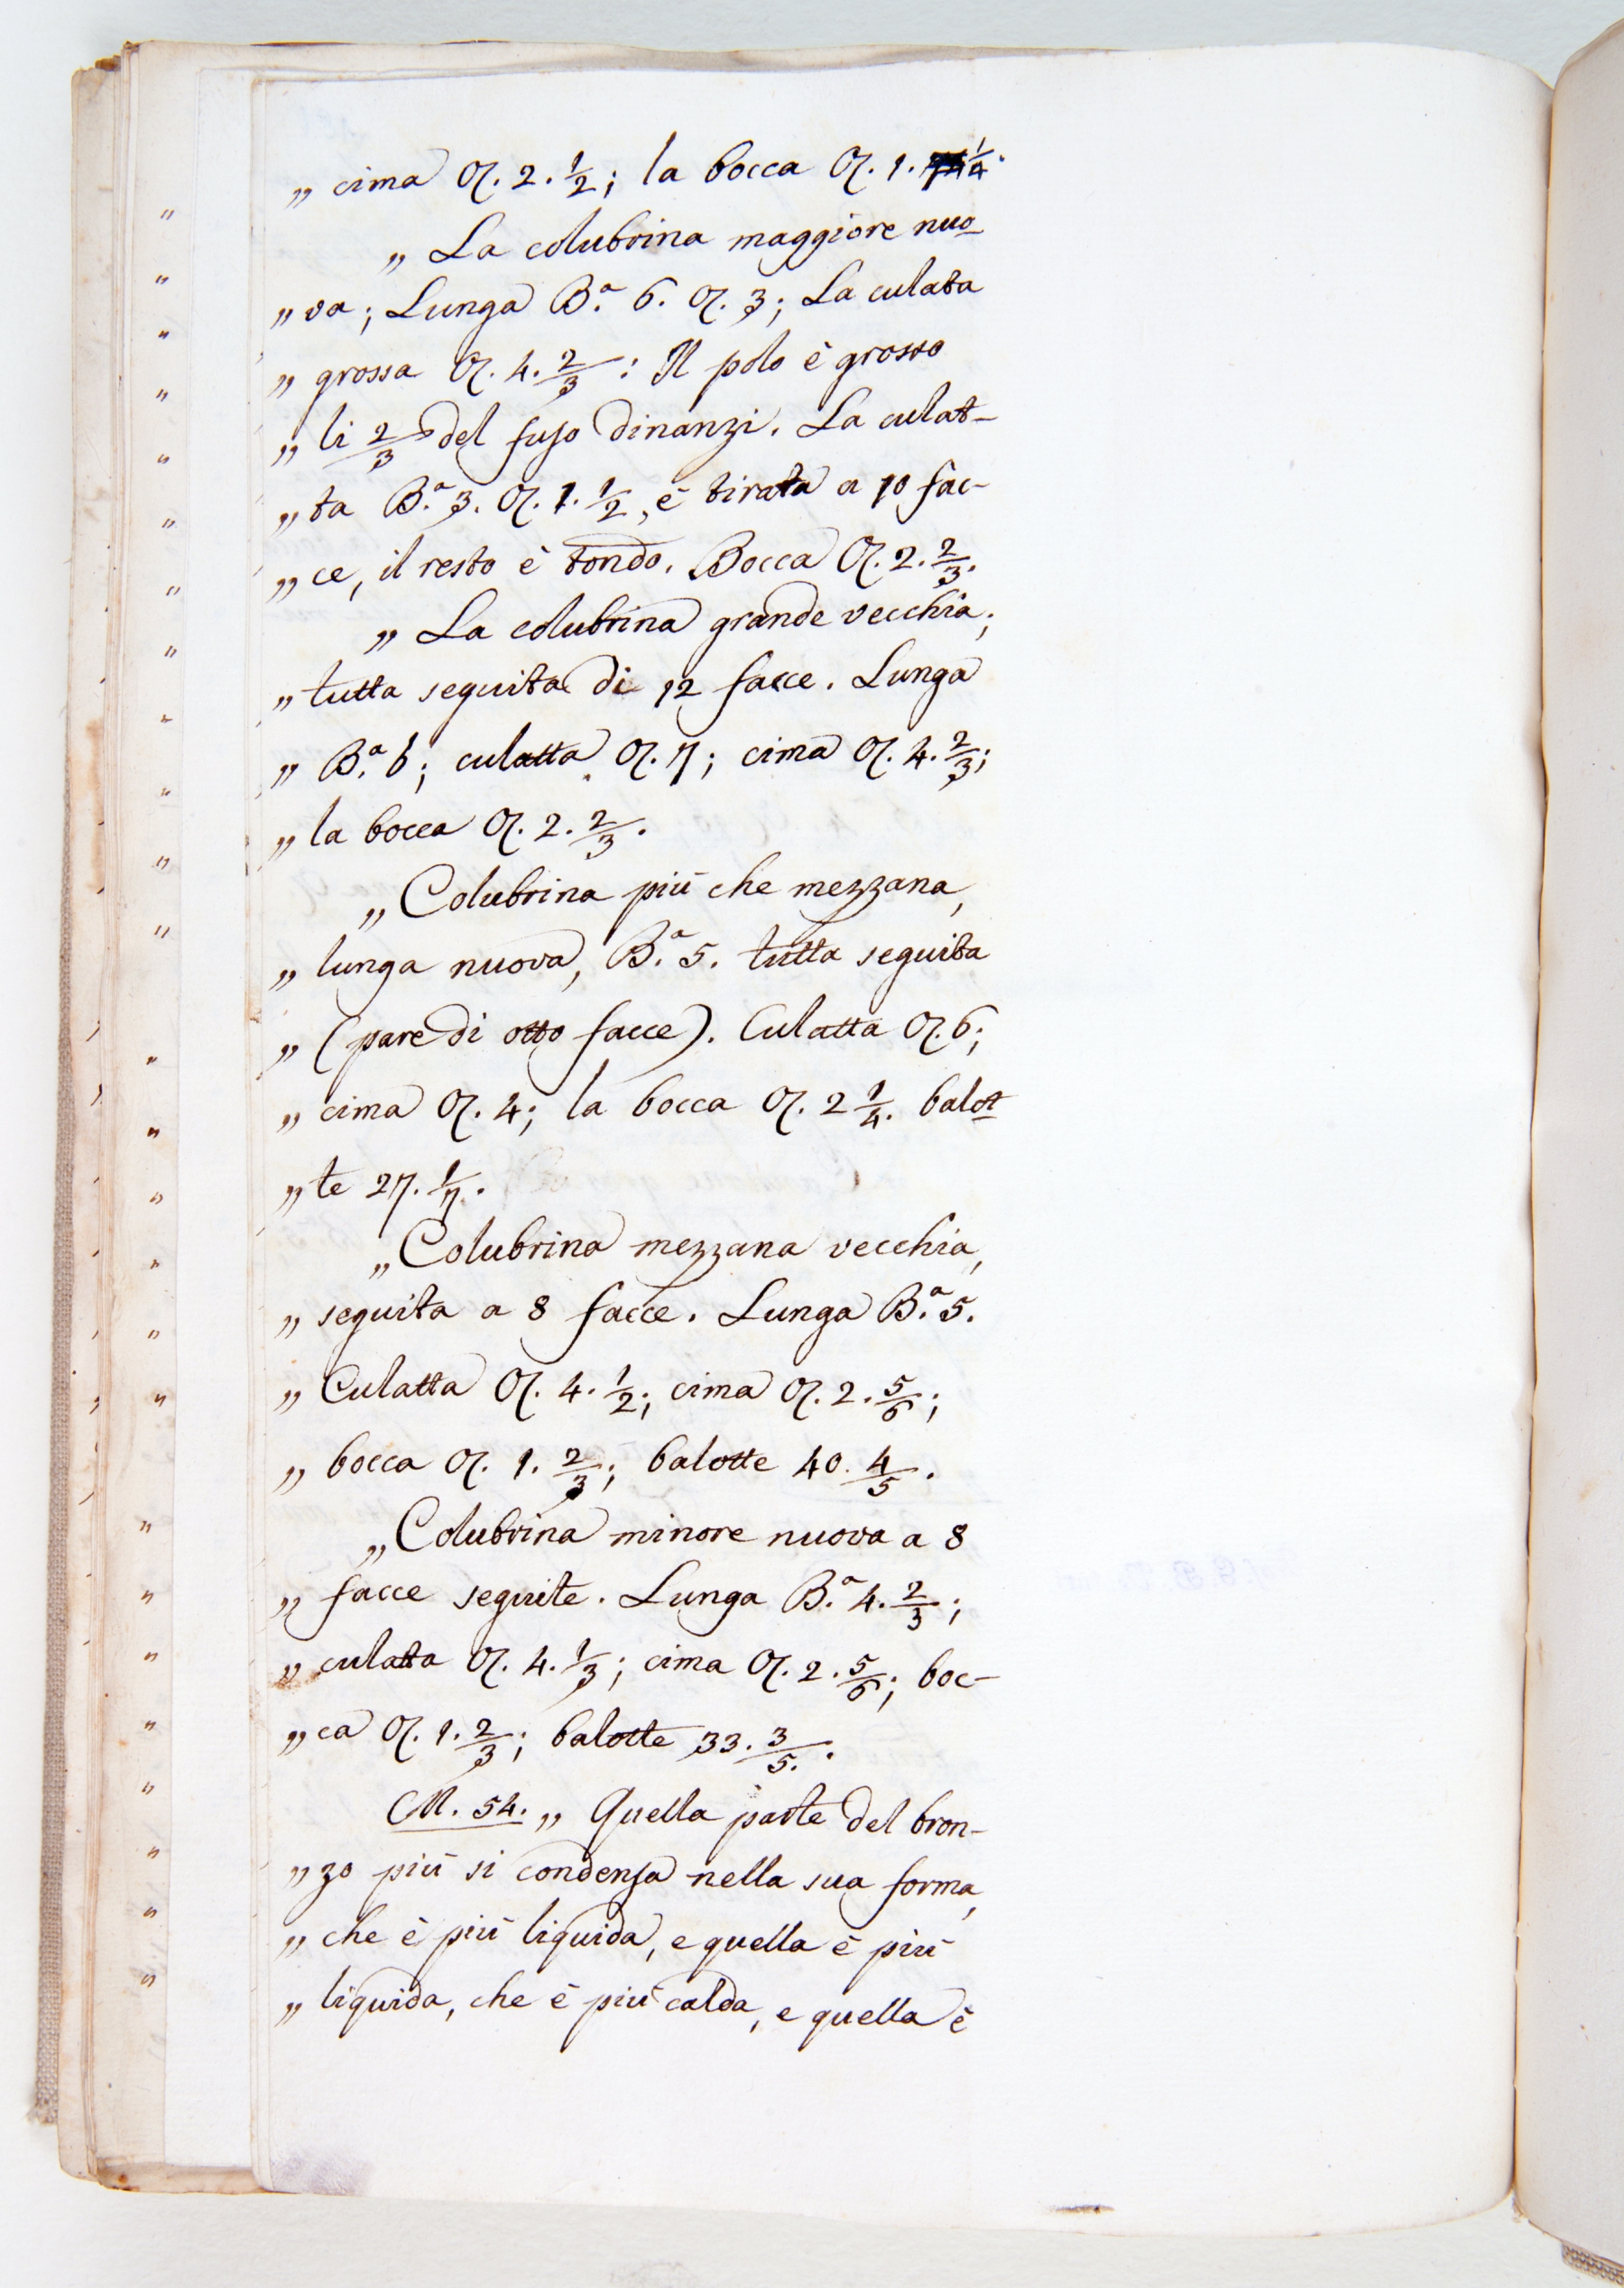 „ cima O7. 2. 1/2; la bocca O7. 1. 1/4.
„ La colubrina maggiore nuo
„ va; Lunga B.ª 6. O7. 3; La culata
„ grossa O7. 4. 2/3: Il polo è grosso
„ li 2/3 del fuso dinanzi. La culat-
„ ta B.ª 3. O7. 1. 1/2, è tirata a 10 fac-
„ ce, il resto è tondo. Bocca O7. 2. 2/3.
„ La colubrina grande vecchia;
„ tutta seguita di 12 facce. Lunga
„ B.ª 6; culatta O7. 7; cima O7. 4. 2/3;
„ la bocca O7. 2. 2/3.
„ Colubrina più che mezzana,
„ lunga nuova, B.ª 5. tutta seguita
„ (pare di otto facce). Culatta O7. 6;
„ cima O7. 4; la bocca O7. 2 1/4. balot
„ te 27. 1/7.
„ Colubrina mezzana vecchia,
„ seguita a 8 facce. Lunga B.ª 5.
„ Culatta O7. 4. 1/2; cima O7. 2. 5/6;
„ bocca O7. 1. 2/3; balotte 40. 4/5.
„ Colubrina minore nuova a 8
„ facce seguite. Lunga B.ª 4. 2/3;
„ culatta O7. 4. 1/3; cima O7. 2. 5/6; boc-
„ ca O7. 1. 2/3; balotte 33. 3/5.
M. 54. „ Quella parte del bron-
„ zo più si condensa nella sua forma,
„ che è più liquida, e quella è più
„ liquida, che è più calda, e quella è